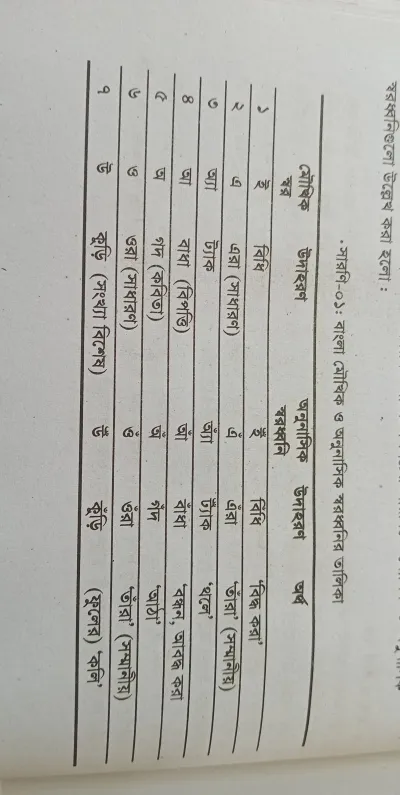 স্বরধ্বনিগুলো উল্লেখ করা হলো :
সারণি-০১: বাংলা মৌখিক ও অনুনাসিক স্বরধ্বনির তালিকা
মৌখিক স্বর উদাহরণ অনুনাসিক স্বরধ্বনি উদাহরণ অর্থ
১ ই বিধি ইঁ বিঁধি ‘বিদ্ধ করা’
২ এ এরা (সাধারণ) এঁ এঁরা ‘তাঁরা’ (সম্মানীয়)
৩ অ্যা ট্যাক অ্যাঁ ট্যাঁক ‘থলে’
৪ আ বাধা (বিপত্তি) আঁ বাঁধা ‘বন্ধন, আবদ্ধ করা
৫ অ গদ (কবিতা) অঁ গঁদ ‘আঠা’
৬ ও ওরা (সাধারণ) ওঁ ওঁরা ‘তাঁরা’ (সম্মানীয়)
৭ উ কুড়ি (সংখ্যা বিশেষ) উঁ কুঁড়ি (ফুলের) ‘কলি’